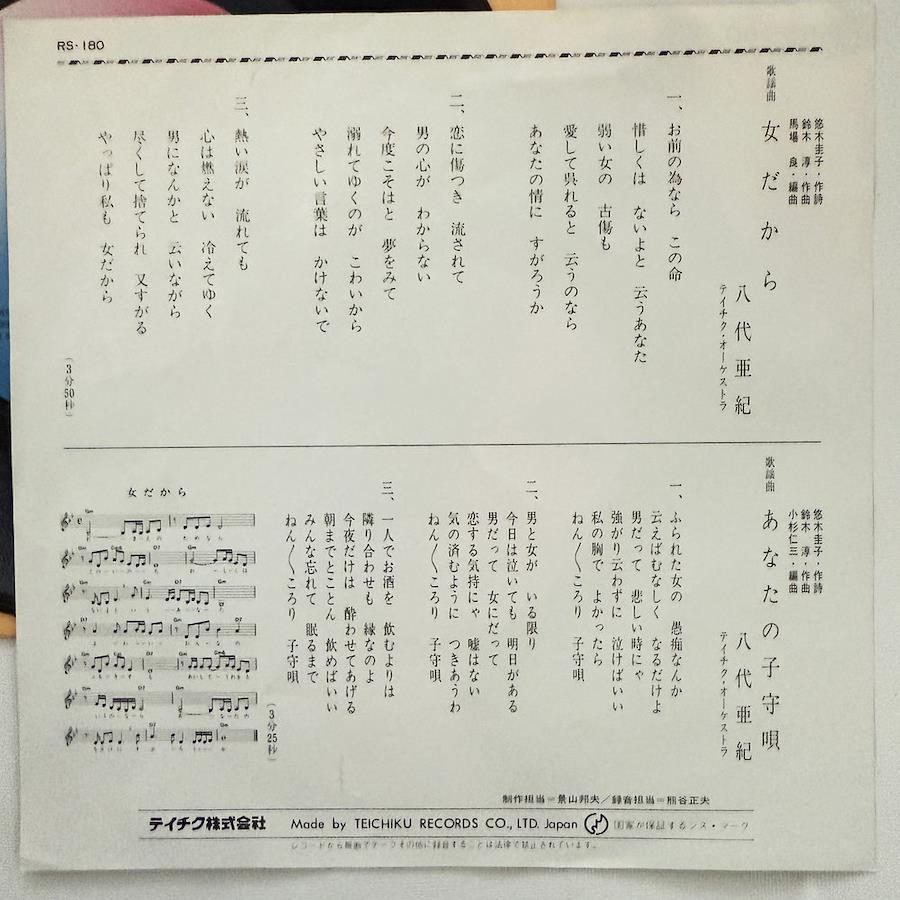 RS-180
歌謡曲
女だから
悠木圭子・作詩
鈴木 淳・作曲
馬場 良・編曲
八代亜紀
テイチク・オーケストラ
一、お前の為なら この命
惜しくは ないよと 云うあなた
弱い女の 古傷も
愛して呉れると 云うのなら
あなたの情に すがろうか
二、恋に傷つき 流されて
男の心が わからない
今度こそはと 夢をみて
溺れてゆくのが こわいから
やさしい言葉は かけないで
三、熱い涙が 流れても
心は燃えない 冷えてゆく
男になんかと 云いながら
尽くして捨てられ 又すがる
やっぱり私も 女だから
(3分50秒)
歌謡曲
あなたの子守唄
悠木圭子・作詩
鈴木 淳・作曲
小杉仁三・編曲
八代亜紀
テイチク・オーケストラ
一、ふられた女の 愚痴なんか
云えばむなしく なるだけよ
男だって 悲しい時にゃ
強がり云わずに 泣けばいい
私の胸で よかったら
ねん〱ころり 子守唄
二、男と女が いる限り
今日は泣いても 明日がある
男だって 女にだって
恋する気持にゃ 嘘はない
気の済むように つきあうわ
ねん〱ころり 子守唄
三、一人でお酒を 飲むよりは
隣り合わせも 縁なのよ
今夜だけは 酔わせてあげる
朝までとことん 飲めばいい
みんな忘れて 眠るまで
ねん〱ころり 子守唄
(3分25秒)
女だから
制作担当=景山邦夫/録音担当=熊谷正夫
テイチク株式会社 Made by TEICHIKU RECORDS CO., LTD. Japan